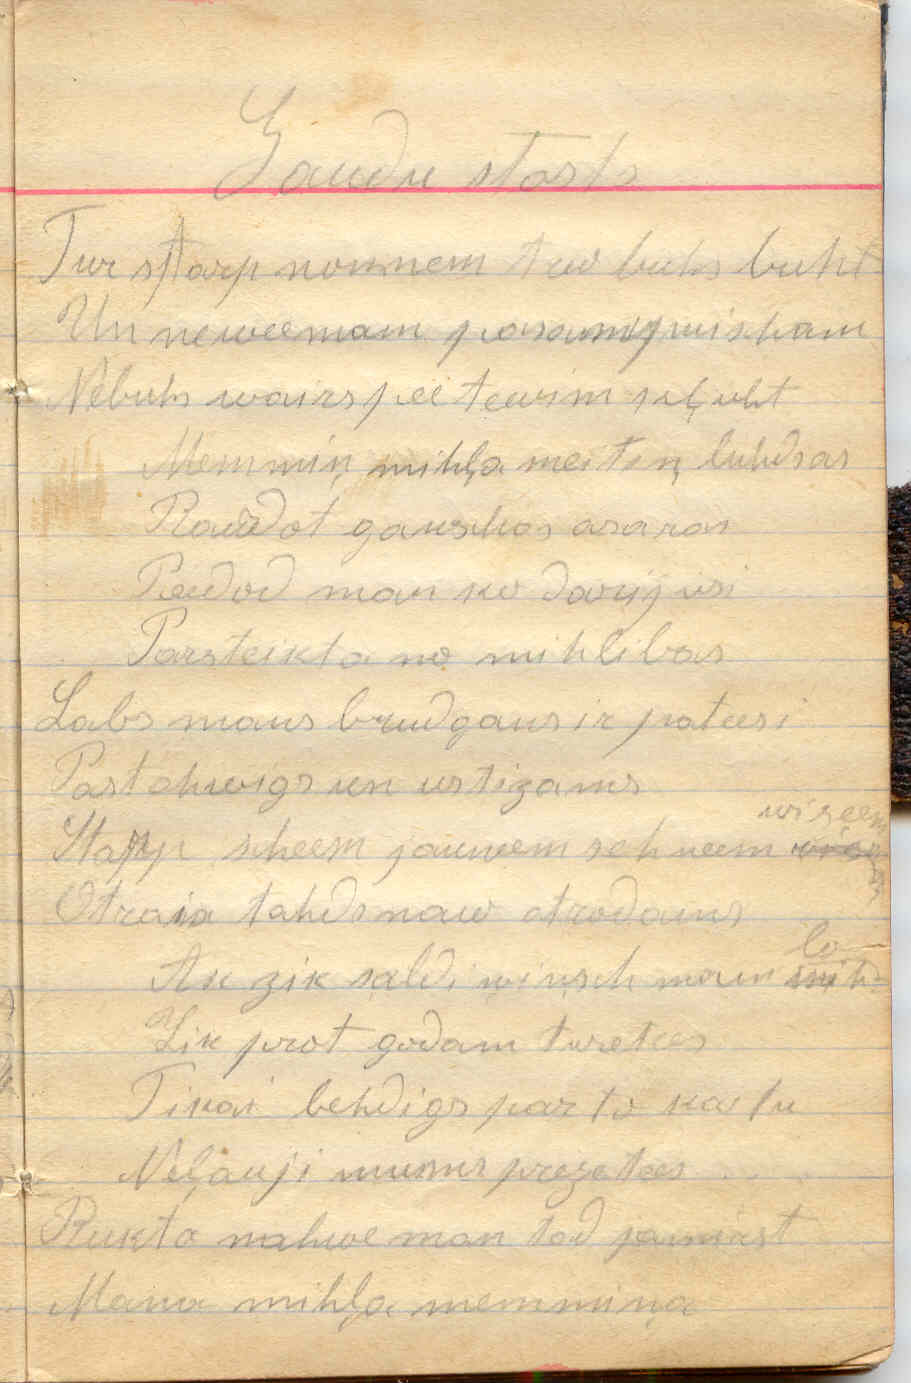 Gaudu stasts
Tur starp nonnem tew buhs buht
Un neweenam pasaules
Nebuhs wairs pee tewim kļuht
Memmiņ, mihļa meitiņ luhdsas
Raudot gauschas asaras
Peedod man ko darijusi
Pahrsteikta no mihlibas
Labs mans brudgans ir pateesi
Pastahwigs un ustizams
Starp scheem jauneem sehneem wiseem
Otrais tahds naw atrodams
Ak zik saldi wiņsch mani
Zik prot godam turetees
Tikai behdigs par to ka tu
Neļauji mums prezetees
Rukta nahwe man tad jamirst
Mana mihļa memmiņa